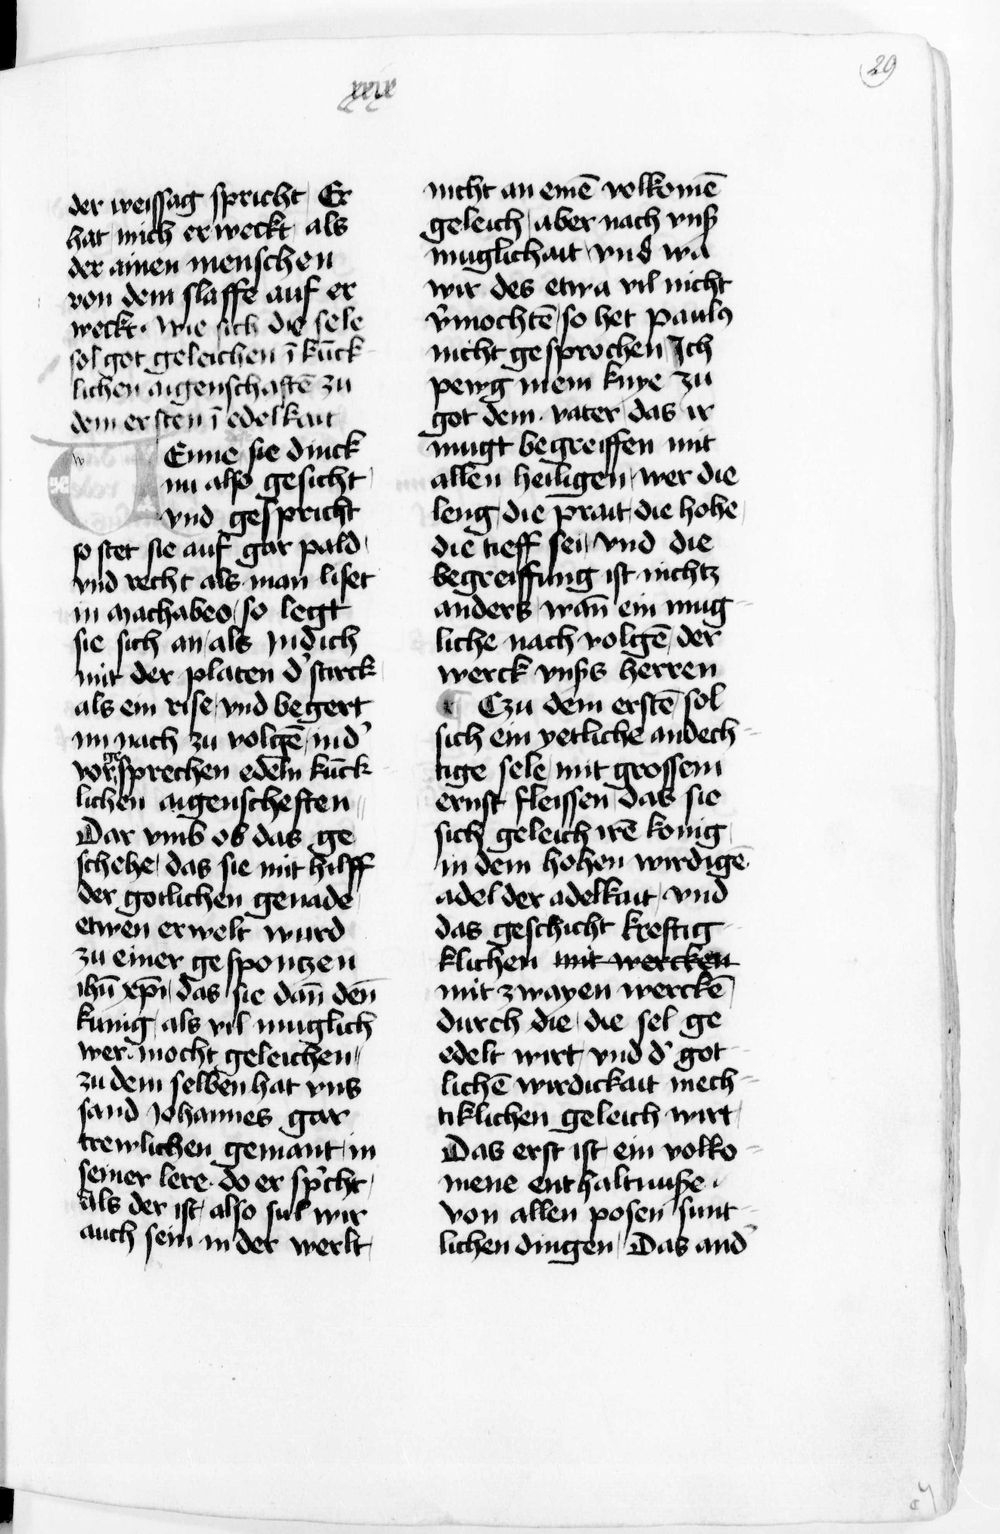 xxix
29
der weissag spricht / Er
hat mich erweckt / als
der ainen menschen
von dem slaffe auf er
weckt · Wie sich die sele
sol got geleichen ī kūck
lichen aigenschaftē zu
dem ersten ī edelkait
WEnne sie dinck
nu also gesicht /
vnd gespricht
so stet sie auf gar pald /
vnd recht als man liset
in Machabeo / so legt
sie sich an / als Judich
mit der platen d' starck /
als ein rise / vnd begert
im nach zu volgē / in d'
vorgesprechen edeln kūck
lichen aigenscheften //
Dar vmb ob das ge
schehe / das sie mit hilff
der gotlichen genade /
etwen erwelt wurd
zu einer gespontzen
ihū xp̄i / das sie dan̄ den̄
kunig / als vil muglich
wer · mocht geleichen //
zu dem selben hat vns
sand Johannes gar
trewlichen gemant / in
seiner lere · do er sp'cht /
als der ist / also sul wir
auch sein in der werlt /
nicht an einē volkomē
geleich / aber nach vnß
muglichait / vnd wā
wir des etwa vil nicht
v'mochtē / so het paulus
nicht gesprochen / Ich
pewg mein knye zu
got dem · vater / das ir
mugt begreiffen mit
allen heiligen / wer die
leng / die prait / die hohe /
die tieff sei / vnd die
begreiffung ist nichtz
anders / wan̄ ein mug
liche nach volgē / der
werck vnßs herren
Czu dem erstē sol
sich ein yetliche andech
tige sele / mit grossem
ernst fleissen / das sie
sich geleich irē konig /
in dem hohen wirdigē
adel der adelkait / vnd
das geschicht kreftig
klichen mit wercken
mit zwayen werckē /
durch die / die sel ge
edelt wirt / vnd d' got
lichē wirdickait mech
tiklichen geleich wirt /
Das erst ist ein volko
mene enthaltnuße ·
von allen posen sunt
lichen dingen / Das and'